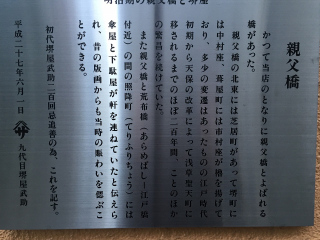 明治期の親父橋と堺屋
親父橋
かつて当店のとなりに親父橋とよばれる
橋があった。
親父橋の北東には芝居町があって堺町に
は中村座、葺屋町には市村座が櫓を揚げて
おり、多くの変遷はあったものの江戸時代
初期から天保の改革によって浅草聖天町に
移されるまでのほぼ二百年間、ことのほか
の繁昌を続けていた。
また親父橋と荒布橋（あらめばし＝江戸橋
付近）の間の照降町（てりふりちょう）には
傘屋と下駄屋が軒を連ねていたと伝えら
れ、昔の版画からも当時の賑わいを偲ぶこ
とができる。
初代堺屋武助二百回忌追善の為、これを記す。
平成二十七年六月一日
九代目堺屋武助